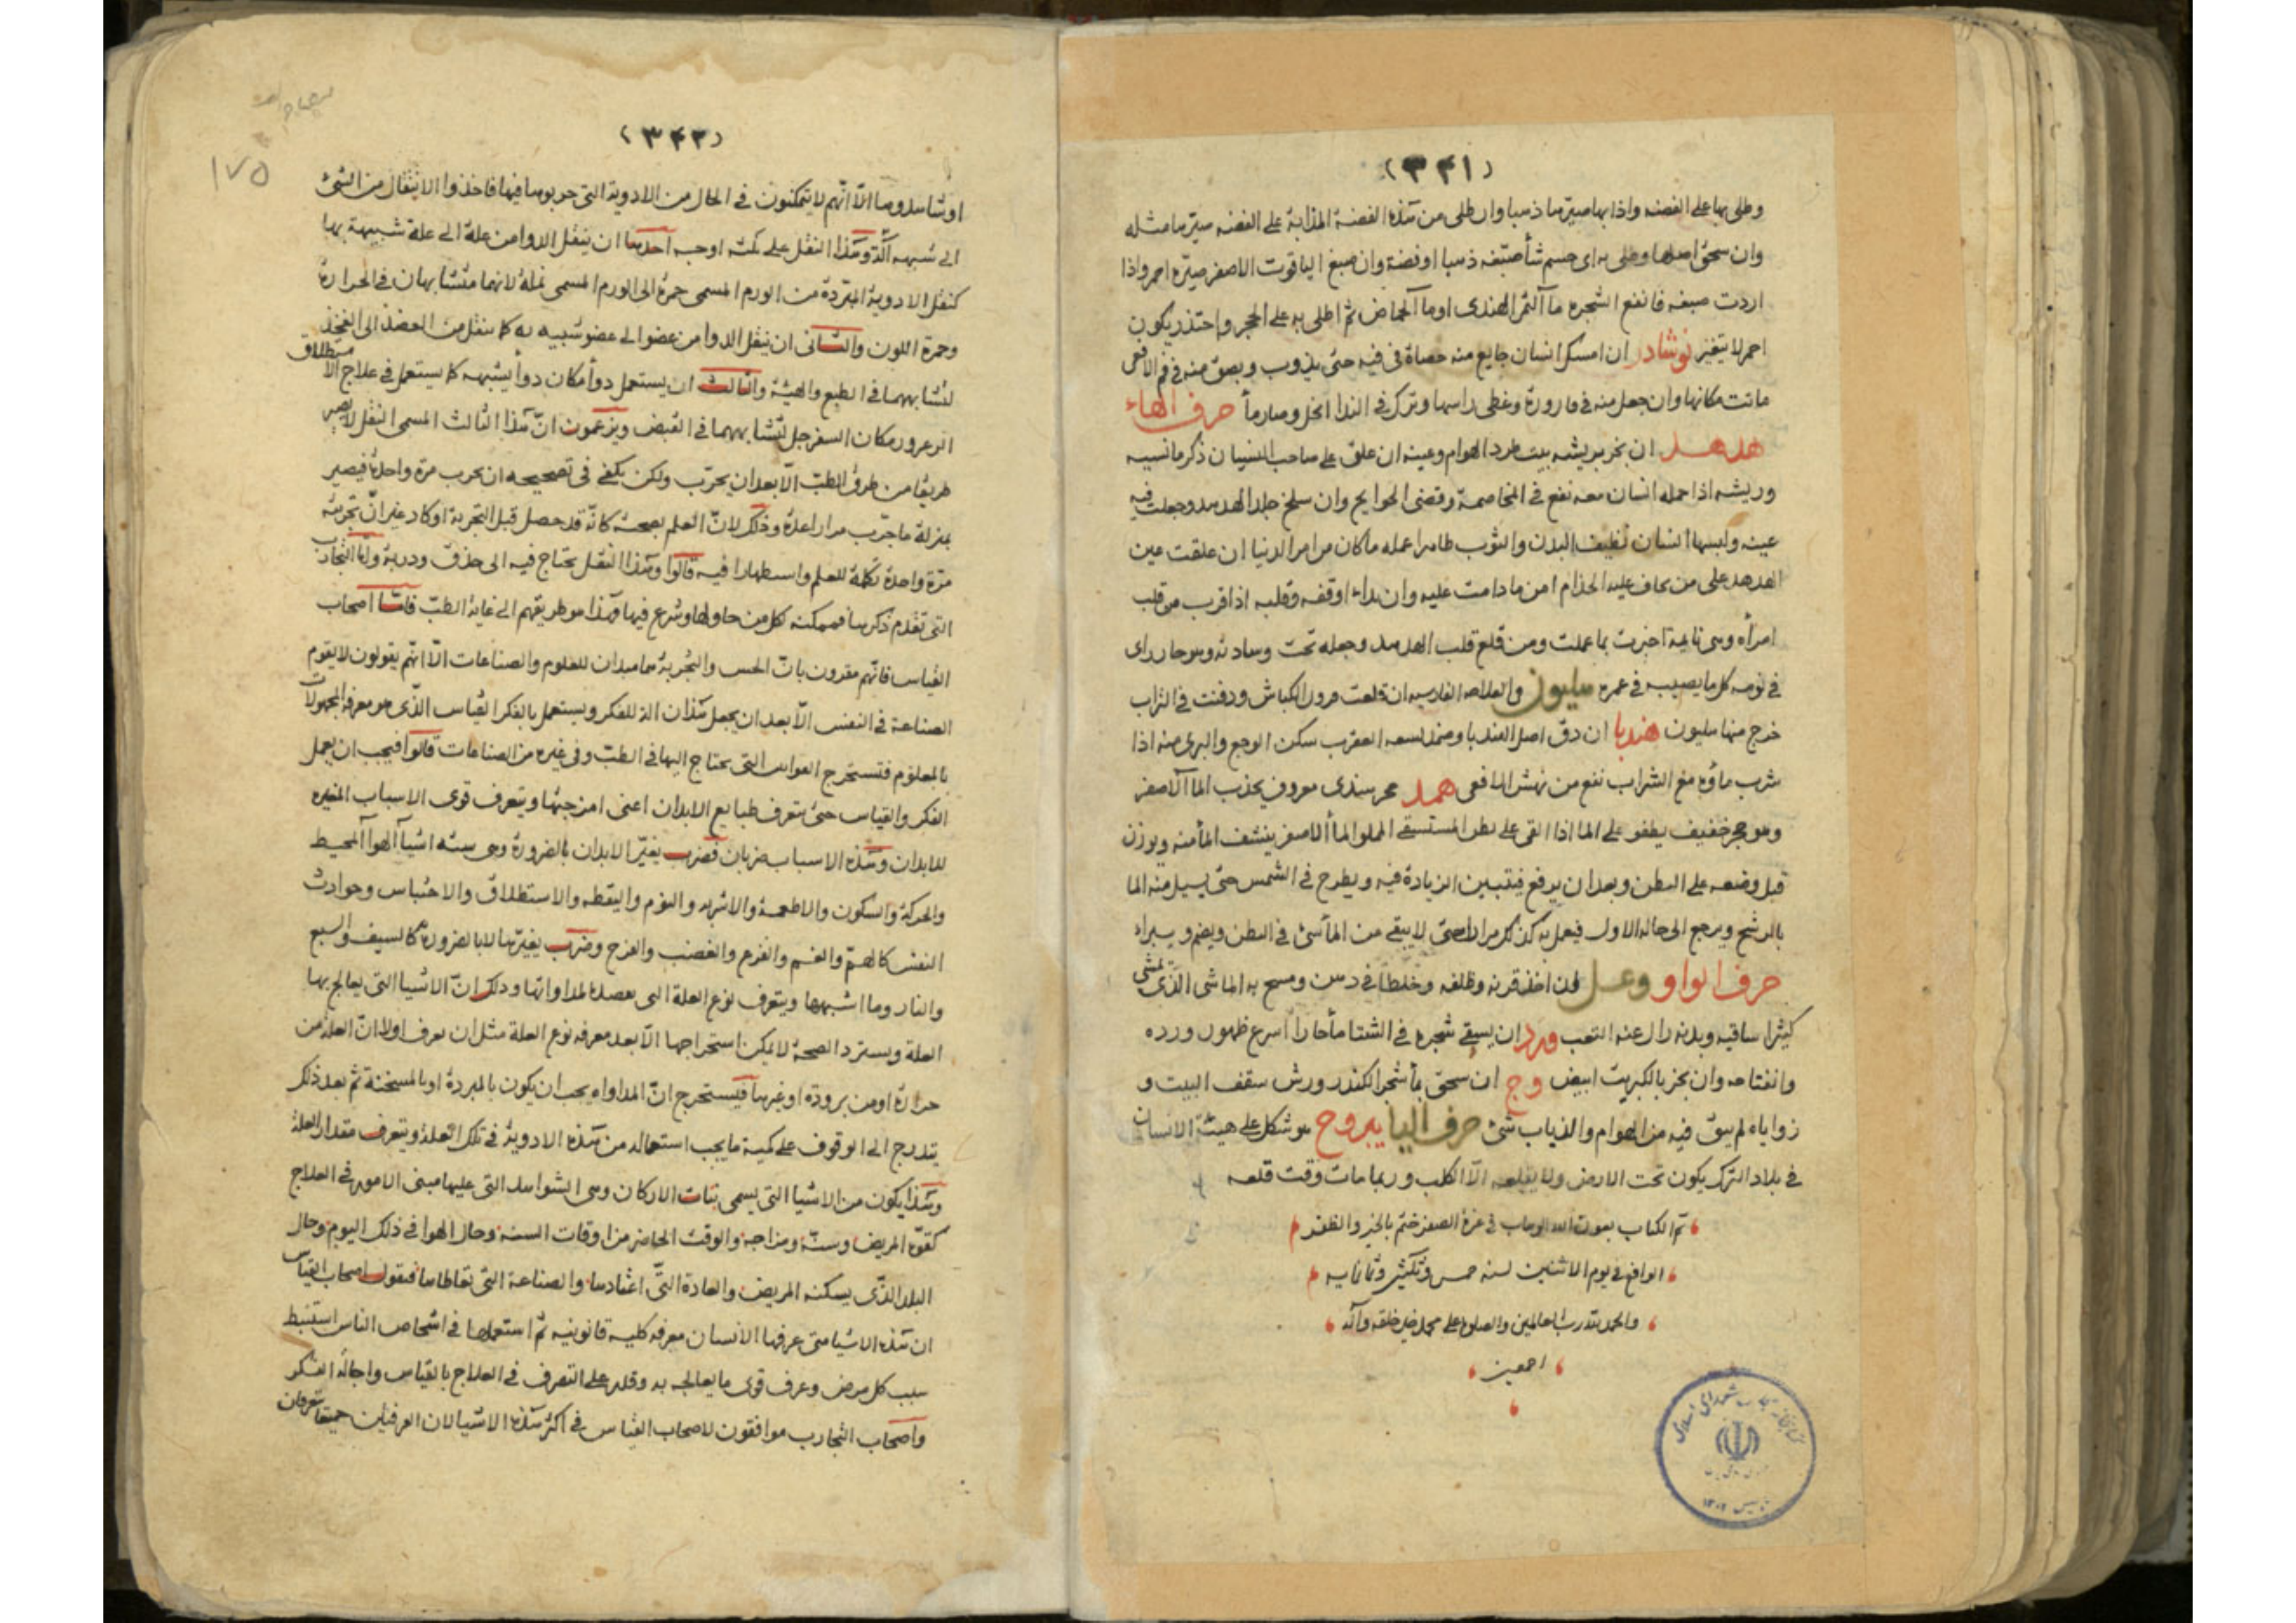 (٣٤١)
وطلى بها على الفضه واذابها صيرتها ذهبا وان طلى من هذه الفضة المذابة على الفضه صيرتها مثله
وان سحق اصلها وطلى به اى جسم شأ صبغه ذهبا او فضة وان صبغ الياقوت الاصفر صيره احمر واذا
اردت صبغه فانقع الشجره مآ التمر الهندى اوما آلحماض ثم اطلى به على الحجر و يكون
احمر لا يتغير نوشادر ان امسك انسان جايع منه حصاة فى فيه حتى يذوب وبصق منه فى فم الافعى
ماتت مكانها وان جعل منه فى قارورة وغطى راسها وترك فى الندا انحل وصار مأ حرف الهاء
هدهد ان بخر بريشه بيت طرد الهوام وعينه ان علق على صاحب النسيان ذكر ما نسيه
وريشه اذا حمله انسان معه نفع فى المخاصمة وقضى الحوايج وان سلخ جلد الهدهد وجعلت فيه
عينه ولبسها انسان نظيف البدن والثوب طاهرا عمله ما كان من امر الدنيا ان علقت عين
الهدهد على من يخاف عليه الجذام امن ما دامت عليه وان بداء اوقفه وقلبه اذا قرب من قلب
امرأه وهى نايمة اخبرت بما عملت ومن قلع قلب الهدهد وجعله تحت وسادته وهو حار راى
فى نومه كل ما يصيبه فى عمره هليون ان قلعت قرون الكباش ودفنت فى التراب
خرج منها هليون هندبا ان دق اصل الهندبا وضمد لسعه العقرب سكن الوجع والبرى منه اذا
شرب مأوه مع الشراب نفع من نهش الافعى حجر هندى معروف يجذب الما الاصفر
وهو حجر خفيف يطفو على الما اذا القى على بطن المستسقى المملو الما ألاصفر ينشف المأ منه ويوزن
قبل وضعه على البطن وبعد ان يرفع فيتبين الزيادة فيه ويطرح فى الشمس حتى يسيل منه الما
بالرشح ويرجع الى حاله الاول فيعمل به كذلك مرارا حتى لا يبقى من المأ شئ فى البطن ويضم ويبراء
حرف الواو وعل ان اخذ قرنه وظلفه وخلطا فى دهن ومسح به الماشى الذى يمشى
كثيرا ساقيه وبدنه زال عنه التعب ورد ان يسقى شجره فى الشتا مأ حارا اسرع ظهور ورده
وانفتاحه وان بخر بالكبريت ابيض وج ان سحق بمأ شجر الكندر ورش سقف البيت و
زواياه لم يبق فيه من الهوام والذباب شئ حرف اليا يبروح هو شكل على هيئة الانسان
فى بلاد الترك يكون تحت الارض ولا يقلعه الا الكلب وربما مات وقت قلعه
تم الكتاب بعون الله الوهاب فى غرة الصفر ختم بالخير والظفر
الواقع فى يوم الاثنين لسنه خمس وثلثين وثمانمايه
والحمد لله رب العالمين والصلوة على محمد خير خلقه وآله
اجمعين
(٣٤٢)
١٧٥
او شاهدوها الا انهم لا يتمكنون فى الحال من الادوية التى جربوها فيها فاخذوا الانتقال من الشئ
الى شبهه وهذا النقل على ثلثه اوجه احدها ان ينقل الدوا من علة الى علة شبيهة بها
كنقل الادوية المبردة من الورم المسمى حمرة الى الورم المسمى نملة لانهما متشابهان فى الحرارة
وحمرة اللون والثانى ان ينقل الدوا من عضو الى عضو شبيه به كما ينقل من العضد الى الفخذ
لتشابههما فى الطبع والهيئة والثالث ان يستعمل دوأ مكان دوأ يشبهه كما يستعمل فى علاج الاستطلاق
الزعرور مكان السفرجل لتشابههما فى القبض ويزعمون ان هذا الثالث المسمى النقل لا يصير
طريقا من طرق الطب الا بعد ان يجرب ولكن يكفى فى تصحيحه ان يجرب مرة واحدة فيصير
بمنزلة ما جرب مرارا عدة وذلك لان العلم بصحته كانه قد حصل قبل التجربة او كاد غير ان تجربته
مرة واحدة تكملة للعلم واستظهارا فيه قالوا وهذا النقل يحتاج فيه الى حذق ودربة واما التجارب
التى تقدم ذكرها فممكنه لكل من حاولها وشرع فيها فهذا هو طريقهم الى غاية الطب فاما اصحاب
القياس فانهم مقرون بان الحس والتجربة هما مبدان للعلوم والصناعات الا انهم يقولون لا يقوم
الصناعة فى النفس الا بعد ان يجعل هذان الة للفكر ويستعمل بالفكر القياس الذى هو معرفه المجهولات
بالمعلوم فتستخرج القوانين التى يحتاج اليها فى الطب وفى غيره من الصناعات قالوا فيجب ان يعمل
الفكر والقياس حتى يتعرف طبايع الابدان اعنى امزجتها ويتعرف قوى الاسباب المغيره
للابدان وهذه الاسباب ضربان فضرب يغير الابدان بالضرورة وهى سته اشيآ الهوآ المحيط
والحركة والسكون والاطعمة والاشربه والنوم واليقظه والاستطلاق والاحتباس وحوادث
النفس كالهم والغم والفزع والغضب والفرح وضرب يغيرها لا بالضروره كالسيف والسبع
والنار وما اشبهها ويتعرف نوع العلة التى يقصد لمداواتها وذلك ان الاشيا التى يعالج بها
العلة ويسترد الصحة لا يمكن استخراجها الا بعد معرفه نوع العلة مثل ان يعرف اولا ان العلة من
حرارة او من برودة او غيرها فيستخرج ان المداواه يجب ان يكون بالمبردة او بالمسخنة ثم بعد ذلك
يتدرج الى الوقوف على كمية ما يجب استعماله من هذه الادوية فى تلك العلة ويتعرف مقدار العلة
وهذا يكون من الاشيا التى يسمى بنات الاركان وهى الشواهد التى عليها مبنى الامور فى العلاج
كقوة المريض وسنه ومزاجه والوقت الحاضر من اوقات السنه وحال الهوا فى ذلك اليوم وحال
البلد الذى يسكنه المريض والعادة التى اعتادها والصناعة التى تعاطاها فيقول اصحاب القياس
ان هذه الاشيا متى عرفها الانسان معرفه كليه قانونيه ثم استعملها فى اشخاص الناس استنبط
سبب كل مرض وعرف قوى ما يعالجه به وقدر على التصرف فى العلاج بالقياس واجالة الفكر
واصحاب التجارب موافقون لاصحاب القياس فى اكثر هذه الاشيا لان الفرقتين جميعا يعرفان